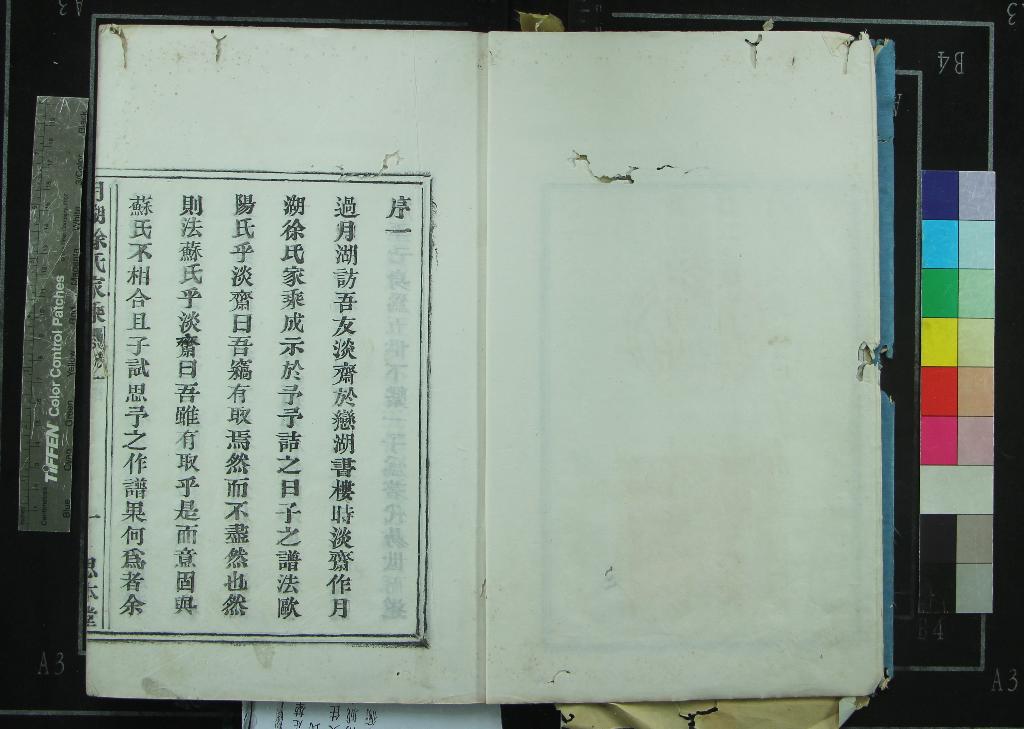 序一
過月湖訪吾友淡齋於戀湖書樓時淡齋作月
湖徐氏家乘成示於予予詰之曰子之譜法歐
陽氏乎淡齋曰吾竊有取焉然而不盡然也然
則法蘇氏乎淡齋曰吾雖有取乎是而意固與
蘇氏不相合且子試思予之作譜果何爲者余
月湖徐氏家乘
一
思本堂
TIFFEN Color Control Patches
A3
B4
A3
B4
A3
A3